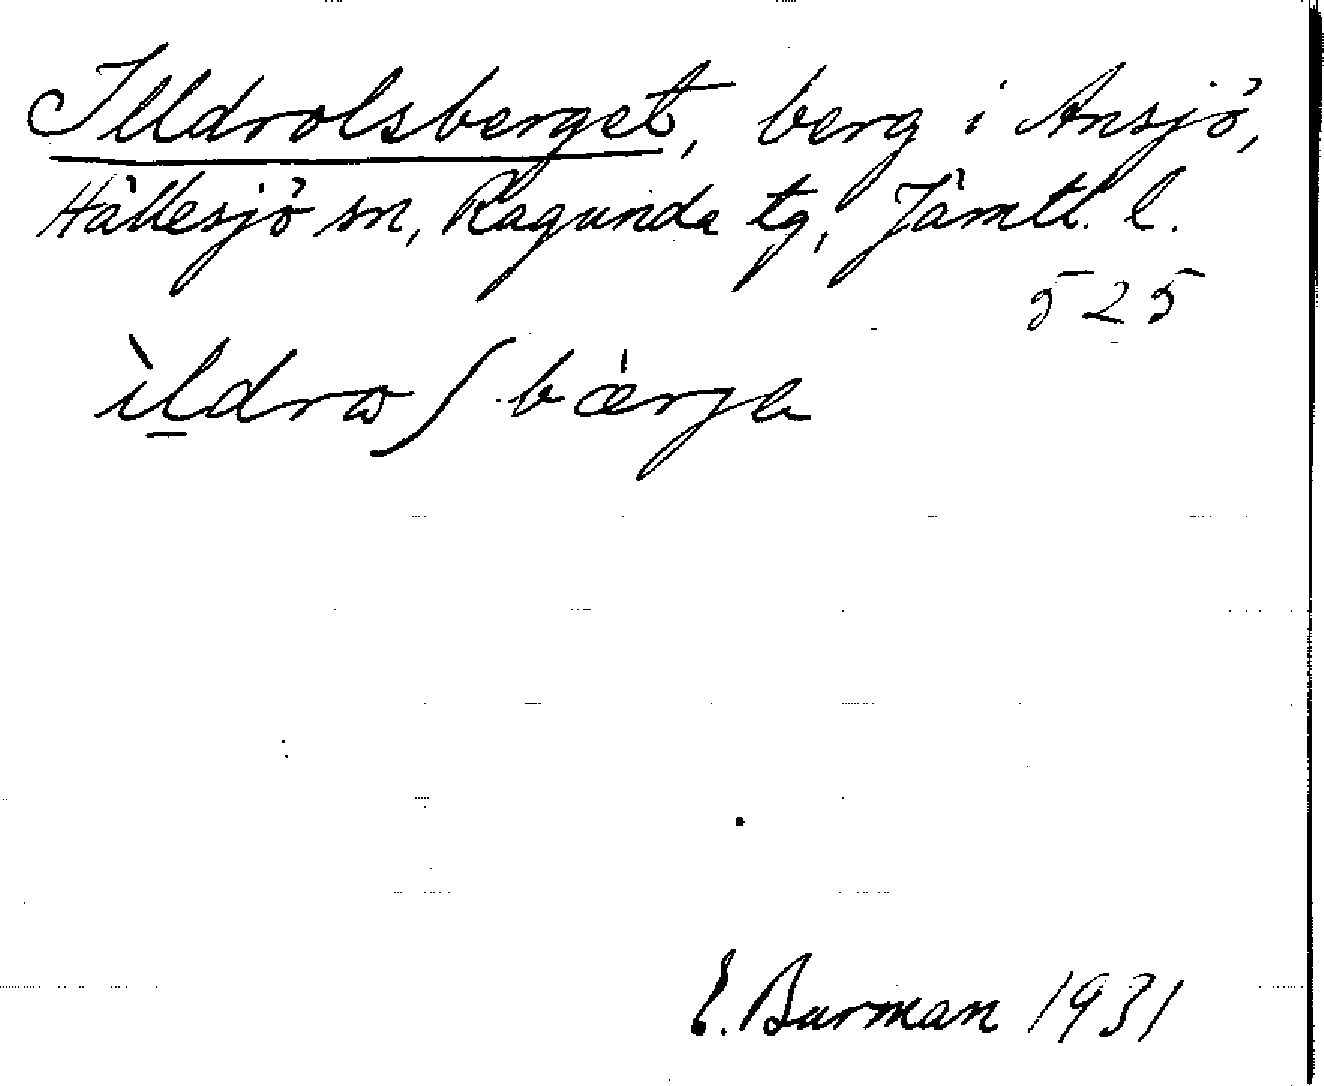 Illdrolsberget, berg i Ansjö,
Hällesjö sn, Ragunda tg, Jämtl. l.
525
ìldraʃbærgə
E. Burman 1931